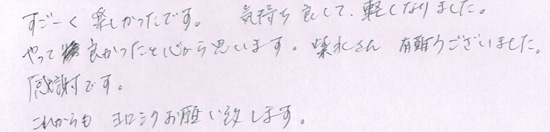 すごーく 楽しかったです。 気持ち良くて、軽くなりました。
やって 良かったと心から思います。 さん 有難うございました。
感謝です。
これからも ヨロシクお願い致します。